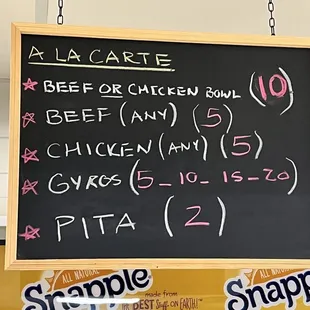 A LA CARTE
BEEF OR CHICKEN BOWL (10)
BEEF (ANY) (5)
CHICKEN (ANY) (5)
GYROS (5_10_15_20)
PITA (2)
ALL NATURAL
Snapple
made from
the BEST Stuff ON EARTH!
ALL NATURAL
Snapp